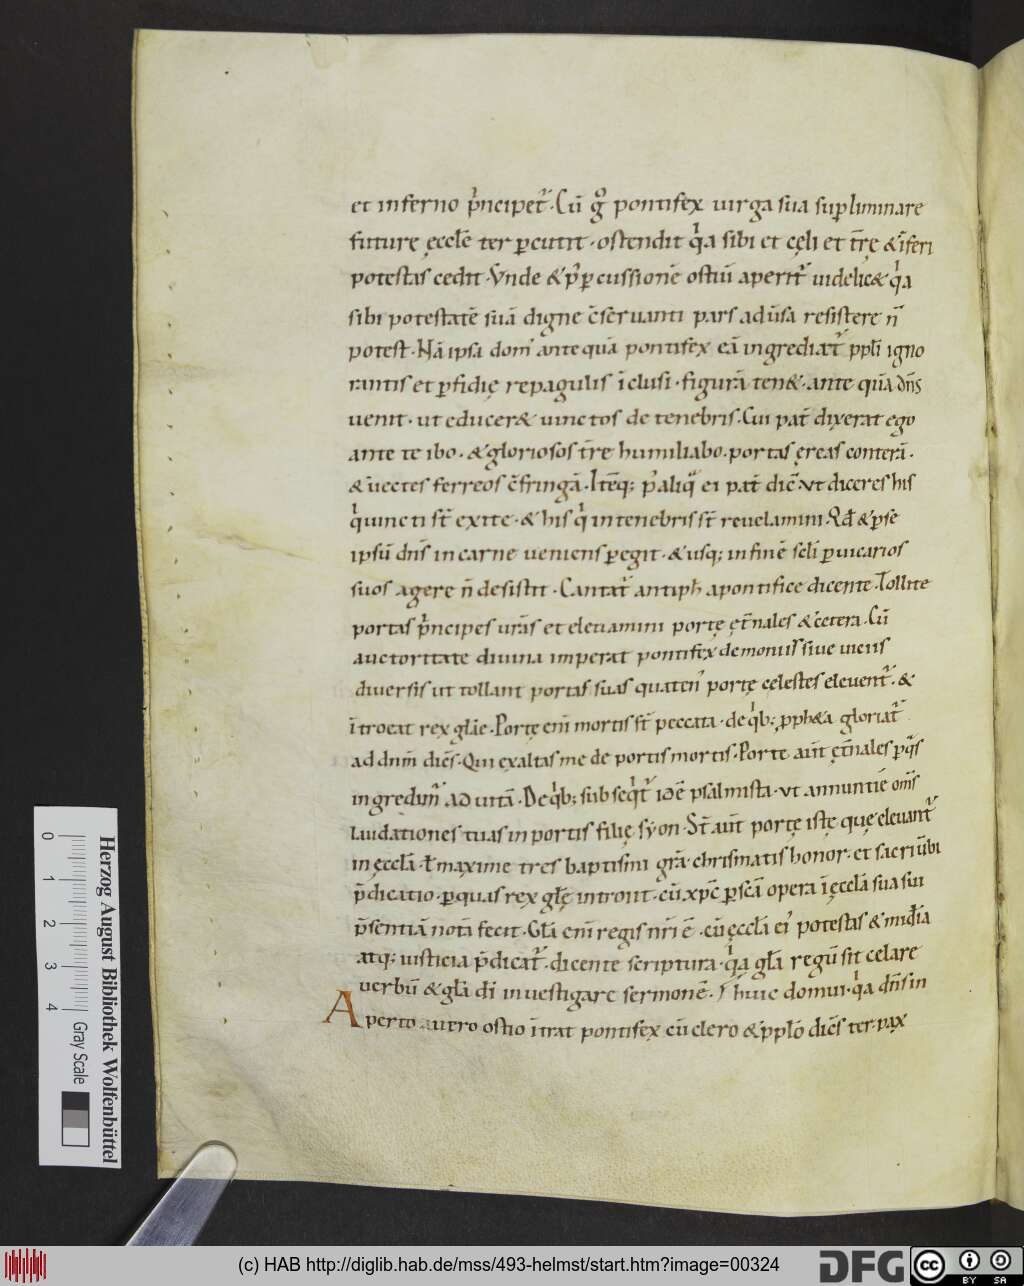 et inferno p̍ncipet᷑. Cū g̊ pontifex uirga sua sup̱ liminare
future̜ e̜ccłe ter ꝑcutit · ostendit q̍a sibi et ce̜li et t̄re̜ & īferi
potestas cedit. Vnde & p̍ ꝑcussionē ostiū aperit᷑ uidelic& q̍a
sibi potestatē suā digne c̄seruanti pars aduersa resistere n̄
potest. Nā ipsa dom᷒ ante quā pontifex eā ingrediat᷑ ppłi igno
rantis et ꝑfidie̜ repagulis īclusi · figurā ten& · ante quā dn̄s
uenit · ut educer& uinctos de tenebris. Cui pat̄ dixerat ego
ante te ibo · & gloriosos t̄re humiliabo · portas e̜reas conterā ·
& uectes ferreos c̄fringā. Itēq; p̍ aliq̄ ei pat̄ dic̄ · vt diceres his
q̍ uincti st̄ exite · & his q̍ in tenebris st̄ reuelamini. Qđ & p̱ se
ipsū dn̄s in carne ueniens ꝑegit · & usq; in finē scłi ꝑ uicarios
suos agere n̄ desistit. Cantat᷑ antiph̄ a pontifice dicente. Tollite
portas p̍ncipes urās et eleuamini porte̜ e̜t̄nales & cetera. Cū
auctoritate diuina imperat pontifex demoniis siue uiciis
diuersis ut tollant portas suas quaten᷒ porte̜ celestes eleuent᷑ · &
ītroeat rex glāe. Porte̜ eni̅ mortis st̄ peccata · de q̍b; ppheta gloriat᷑
ad dn̄m dicēs. Qui exaltas me de portis mortis. Porte aūt e̜t̄nales p̱ q̍s
ingrediun᷑ ad uitā. De q̍b; subseq̍t᷑ idē psalmista · vt annuntiē om̄s
laudationes tuas in portis filie̜ syon. St̄ aūt porte̜ iste̜ que̜ eleuant᷑
in e̜ccłā · ł maxime tres baptismi grā · chrismatis honor · et sacri ūbi
p̄dicatio · ꝑ quas rex głe̜ introiit · cū xp̄c ꝑ scā opera ī e̜ccłā sua sui
p̄sentiā notā fecit. Głā eni̅ regis nr̄i ē · cū e̜ccłā ei᷒ potestas & mīdia
atq; iusticia p̄dicat᷑ · dicente scriptura · q̍a głā regū sit celare
uerbū & głā dī inuestigare sermonē. P huic domui · q̍a dn̄s in
Aperto autro ostio ītrat pontifex cū clero & ppło dicēs ter · pax
0 1 2 3 4
Herzog August Bibliothek Wolfenbüttel
Gray Scale
(c) HAB http://diglib.hab.de/mss/493-helmst/start.htm?image=00324
DFG
cc BY SA